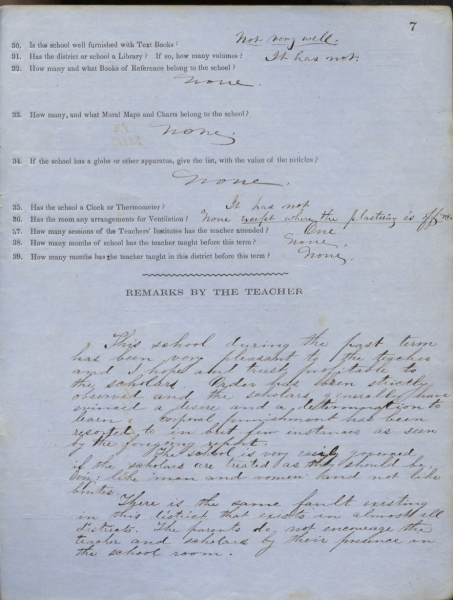 7
30. Is the school well furnished with Text Books? Not very well.
31. Has the district or school a Library? If so, how many volumes? It has not.
32. How many and what Books of Reference belong to the school?
None.
33. How many, and what Mural Maps and Charts belong to the school?
None.
34. If the school has a globe or other apparatus, give the list, with the value of the articles?
None.
35. Has the school a Clock or Thermometer? It has not
36. Has the room any arrangements for Ventilation? None except where the plastering is off
37. How many sessions of the Teachers' Institutes has the teacher attended? One
38. How many months of school has the teacher taught before this term? None.
39. How many months has the teacher taught in this district before this term? None.
REMARKS BY THE TEACHER
This school during the past term
has been very pleasant to the teacher
and I hope and trust profitable to
the scholars. Order has been strictly
observed and the scholars generally have
evinced a desire and a determination to
learn. Corporal punishment has been
resorted to in but few instances as seen
by the foregoing report.
The school is very easily governed
if the scholars are treated as they should be
viz; like men and women and not like
brutes.
There is the same fault existing
in this district that exists in almost all
districts. The parents do not encourage the
teacher and scholars by their presence in
the school room.